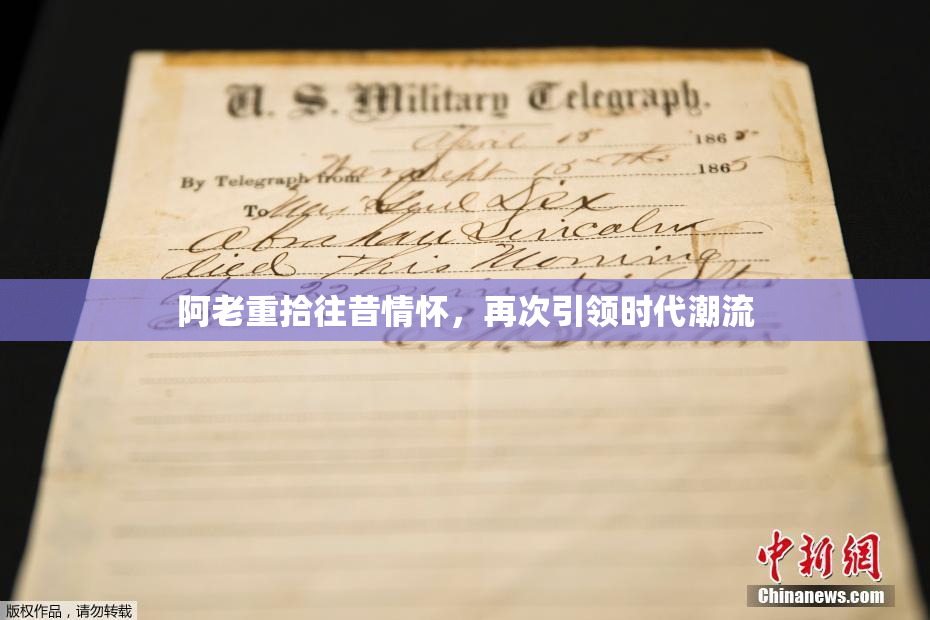 U. S. Military Telegraph.
April 15 1865
By Telegraph from War Dept 15th 1865
To Maj Genl Dix
Abraham Lincoln
died This Morning
22 minutes after
阿老重拾往昔情怀，再次引领时代潮流
E. M. Stanton
中新網
Chinanews.com
版权作品，请勿转载